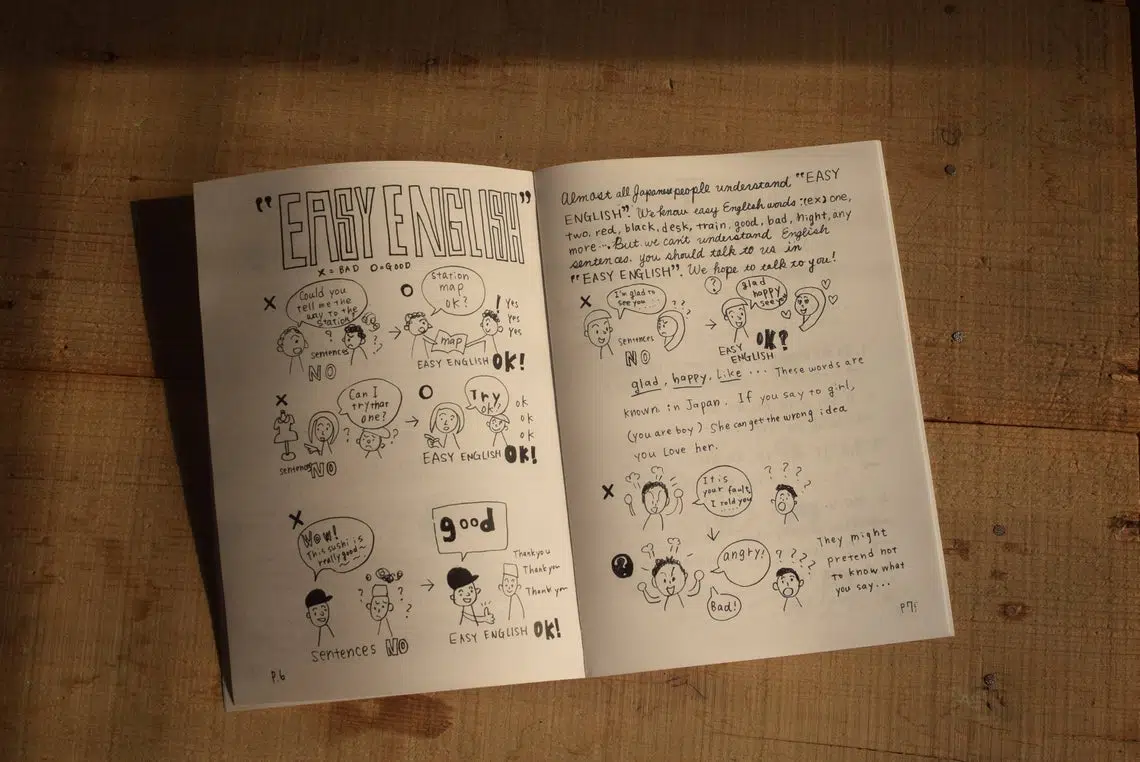 "EASY ENGLISH"
X = BAD O=GOOD
X
Could you
tell me the
way to the
station?
?
?
sentences
NO
O
station
map
OK?
map
!
Yes
Yes
Yes
EASY ENGLISH OK!
X
Can I
try that
one?
?
?
sentences NO
O
Try
OK?
OK
OK
OK
EASY ENGLISH OK!
X
Wow!
This sushi is
really good~
?
?
?
sentences NO
good
Thankyou
Thank you
Thank you
EASY ENGLISH OK!
P.6
Almost all Japanese people understand "EASY
ENGLISH". We know easy English words :(ex) one,
two, red, black, desk, train, good, bad, hight, any
more... But we can't understand English
sentences. you should talk to us in
"EASY ENGLISH". We hope to talk to you!
X
I'm glad to
see you
? ?
sentences
NO
?
glad
happy
see you
EASY
ENGLISH
OK?
glad, happy, Like ... These words are
known in Japan. If you say to girl,
(you are boy) She can get the wrong idea
you Love her.
X
It is
your fault,
I told you
? ? ?
?
angry!
Bad!
? ? ?
They might
pretend not
to know what
you say...